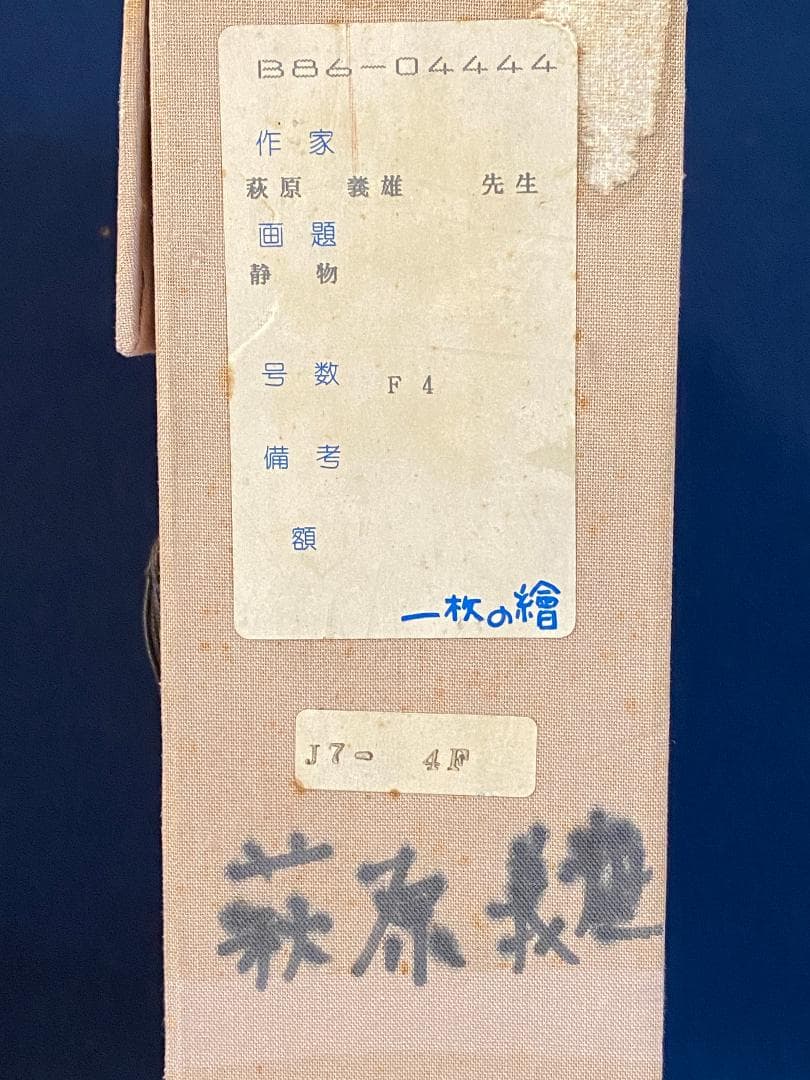 B86-04444
作家
萩原 義雄 先生
画題
静物
号数 F4
備考
額
一枚の繪
J7- 4F
萩原義